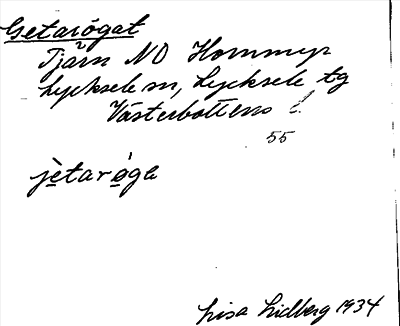 Getarögat
Tjärn NO Hornmyr
Lycksele sn, Lycksele tg
Västerbottens l.
55
jètarǫ̀ga
Lisa Lidberg 1934